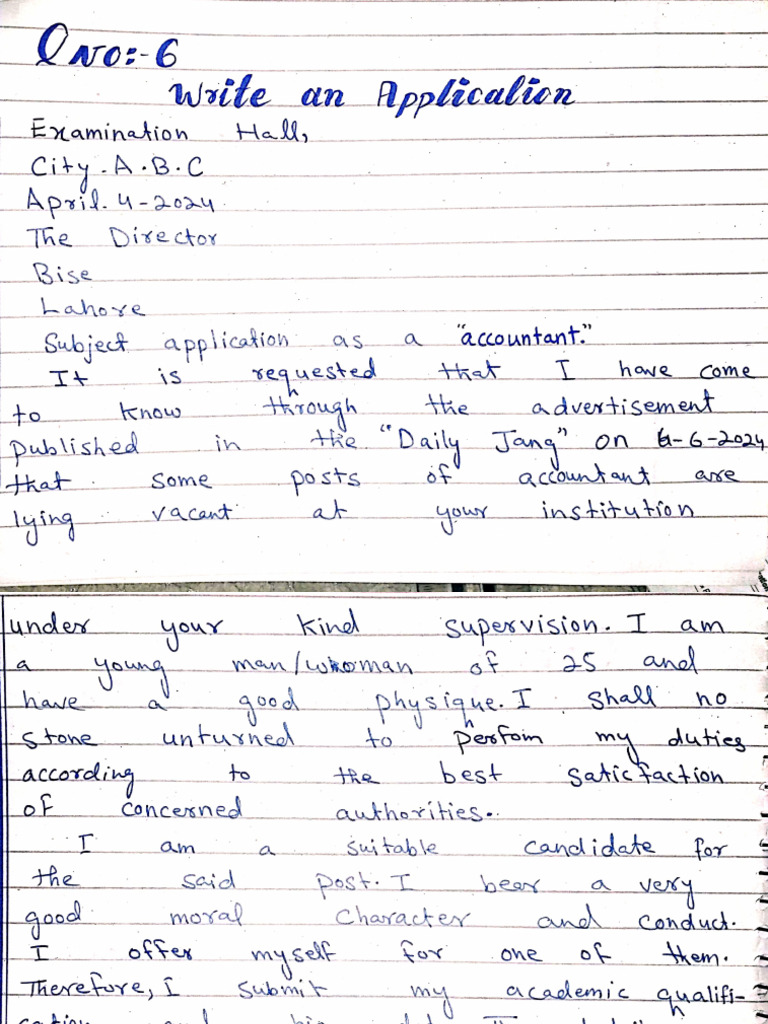 Q NO:- 6
Write an Application
Examination Hall,
City. A.B.C
April. 4-2024
The Director
Bise
Lahore
Subject application as a "accountant."
It is requested that I have come
to know through the advertisement
published in the "Daily Jang" on 6-6-2024
that some posts of accountant are
lying vacant at your institution
under your kind supervision. I am
a young man/woman of 25 and
have a good physique. I shall no
stone unturned to perfoim my duties
according to the best saticfaction
of concerned authorities.
I am a suitable candidate for
the said post. I bear a very
good moral character and conduct.
I offer myself for one of them.
Therefore, I submit my academic qualifi-